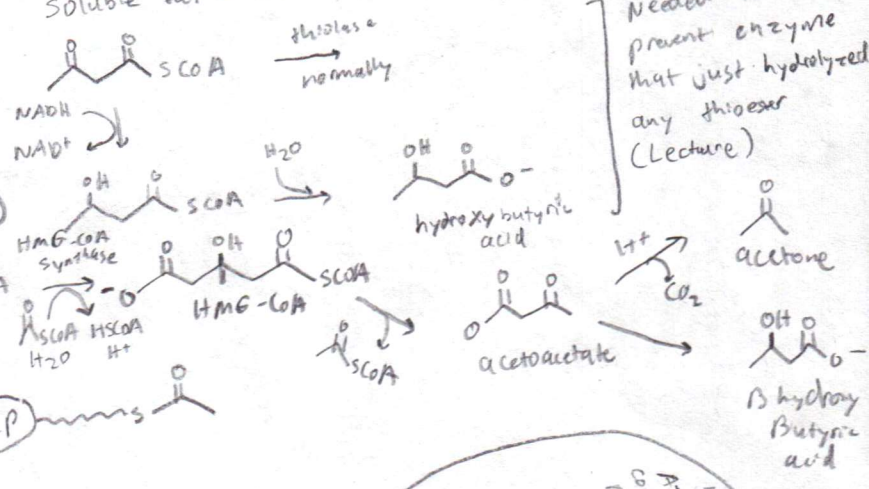 Soluble
O
O
SCOA
thiolase
normally
Needed
prevent enzyme
that just hydrolyzed
any thioester
(Lecture)
NADH
NAD+
OH
O
SCOA
H2O
OH
O
O-
hydroxybutyric
acid
HMG-COA
Synthase
O
OH
O
-O
SCOA
HMG-COA
O
SCOA
H2O
HSCOA
H+
O
SCOA
O
O
O
acetoacetate
H+
CO2
O
acetone
OH
O
O-
B hydroxy
Butyric
acid
P
S
O